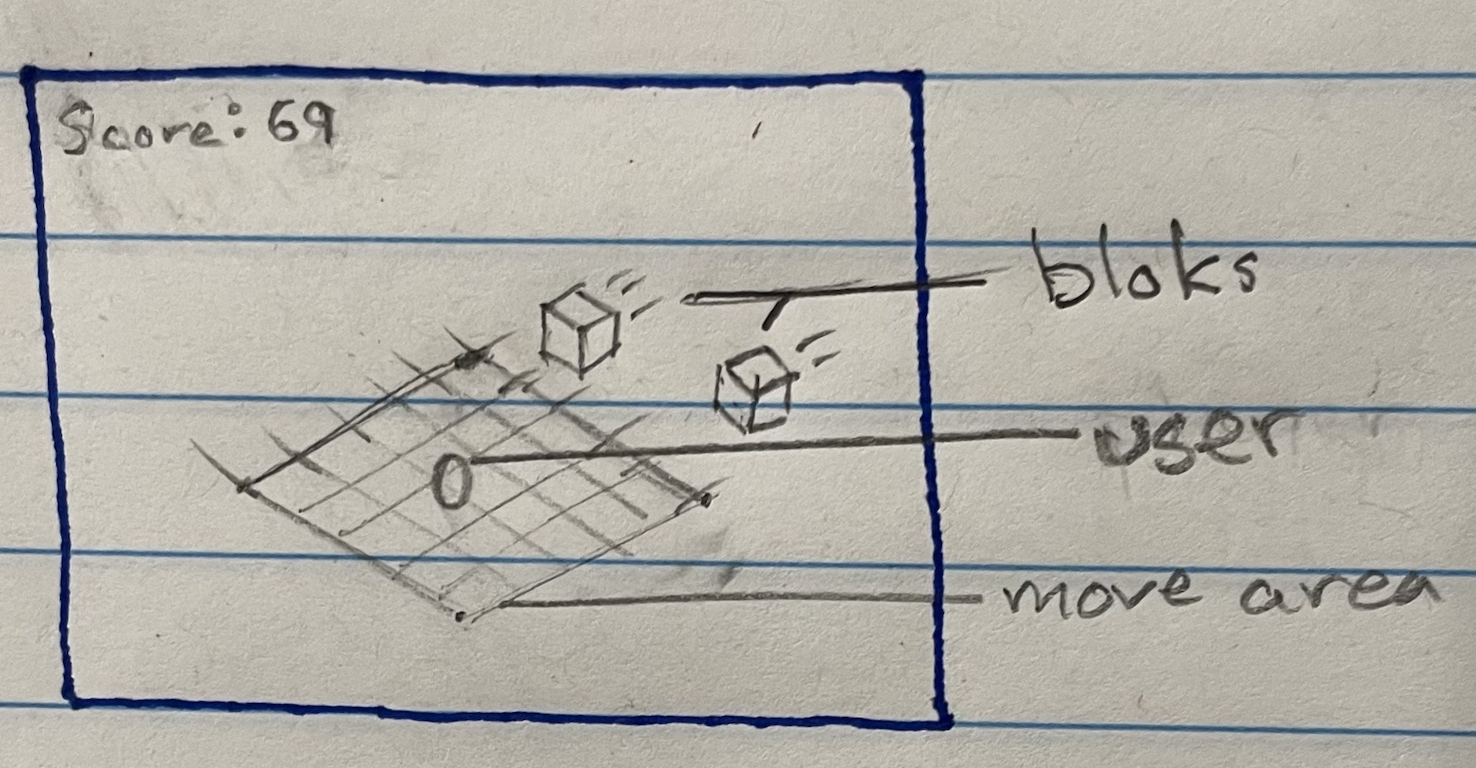 Score: 69
bloks
user
move area